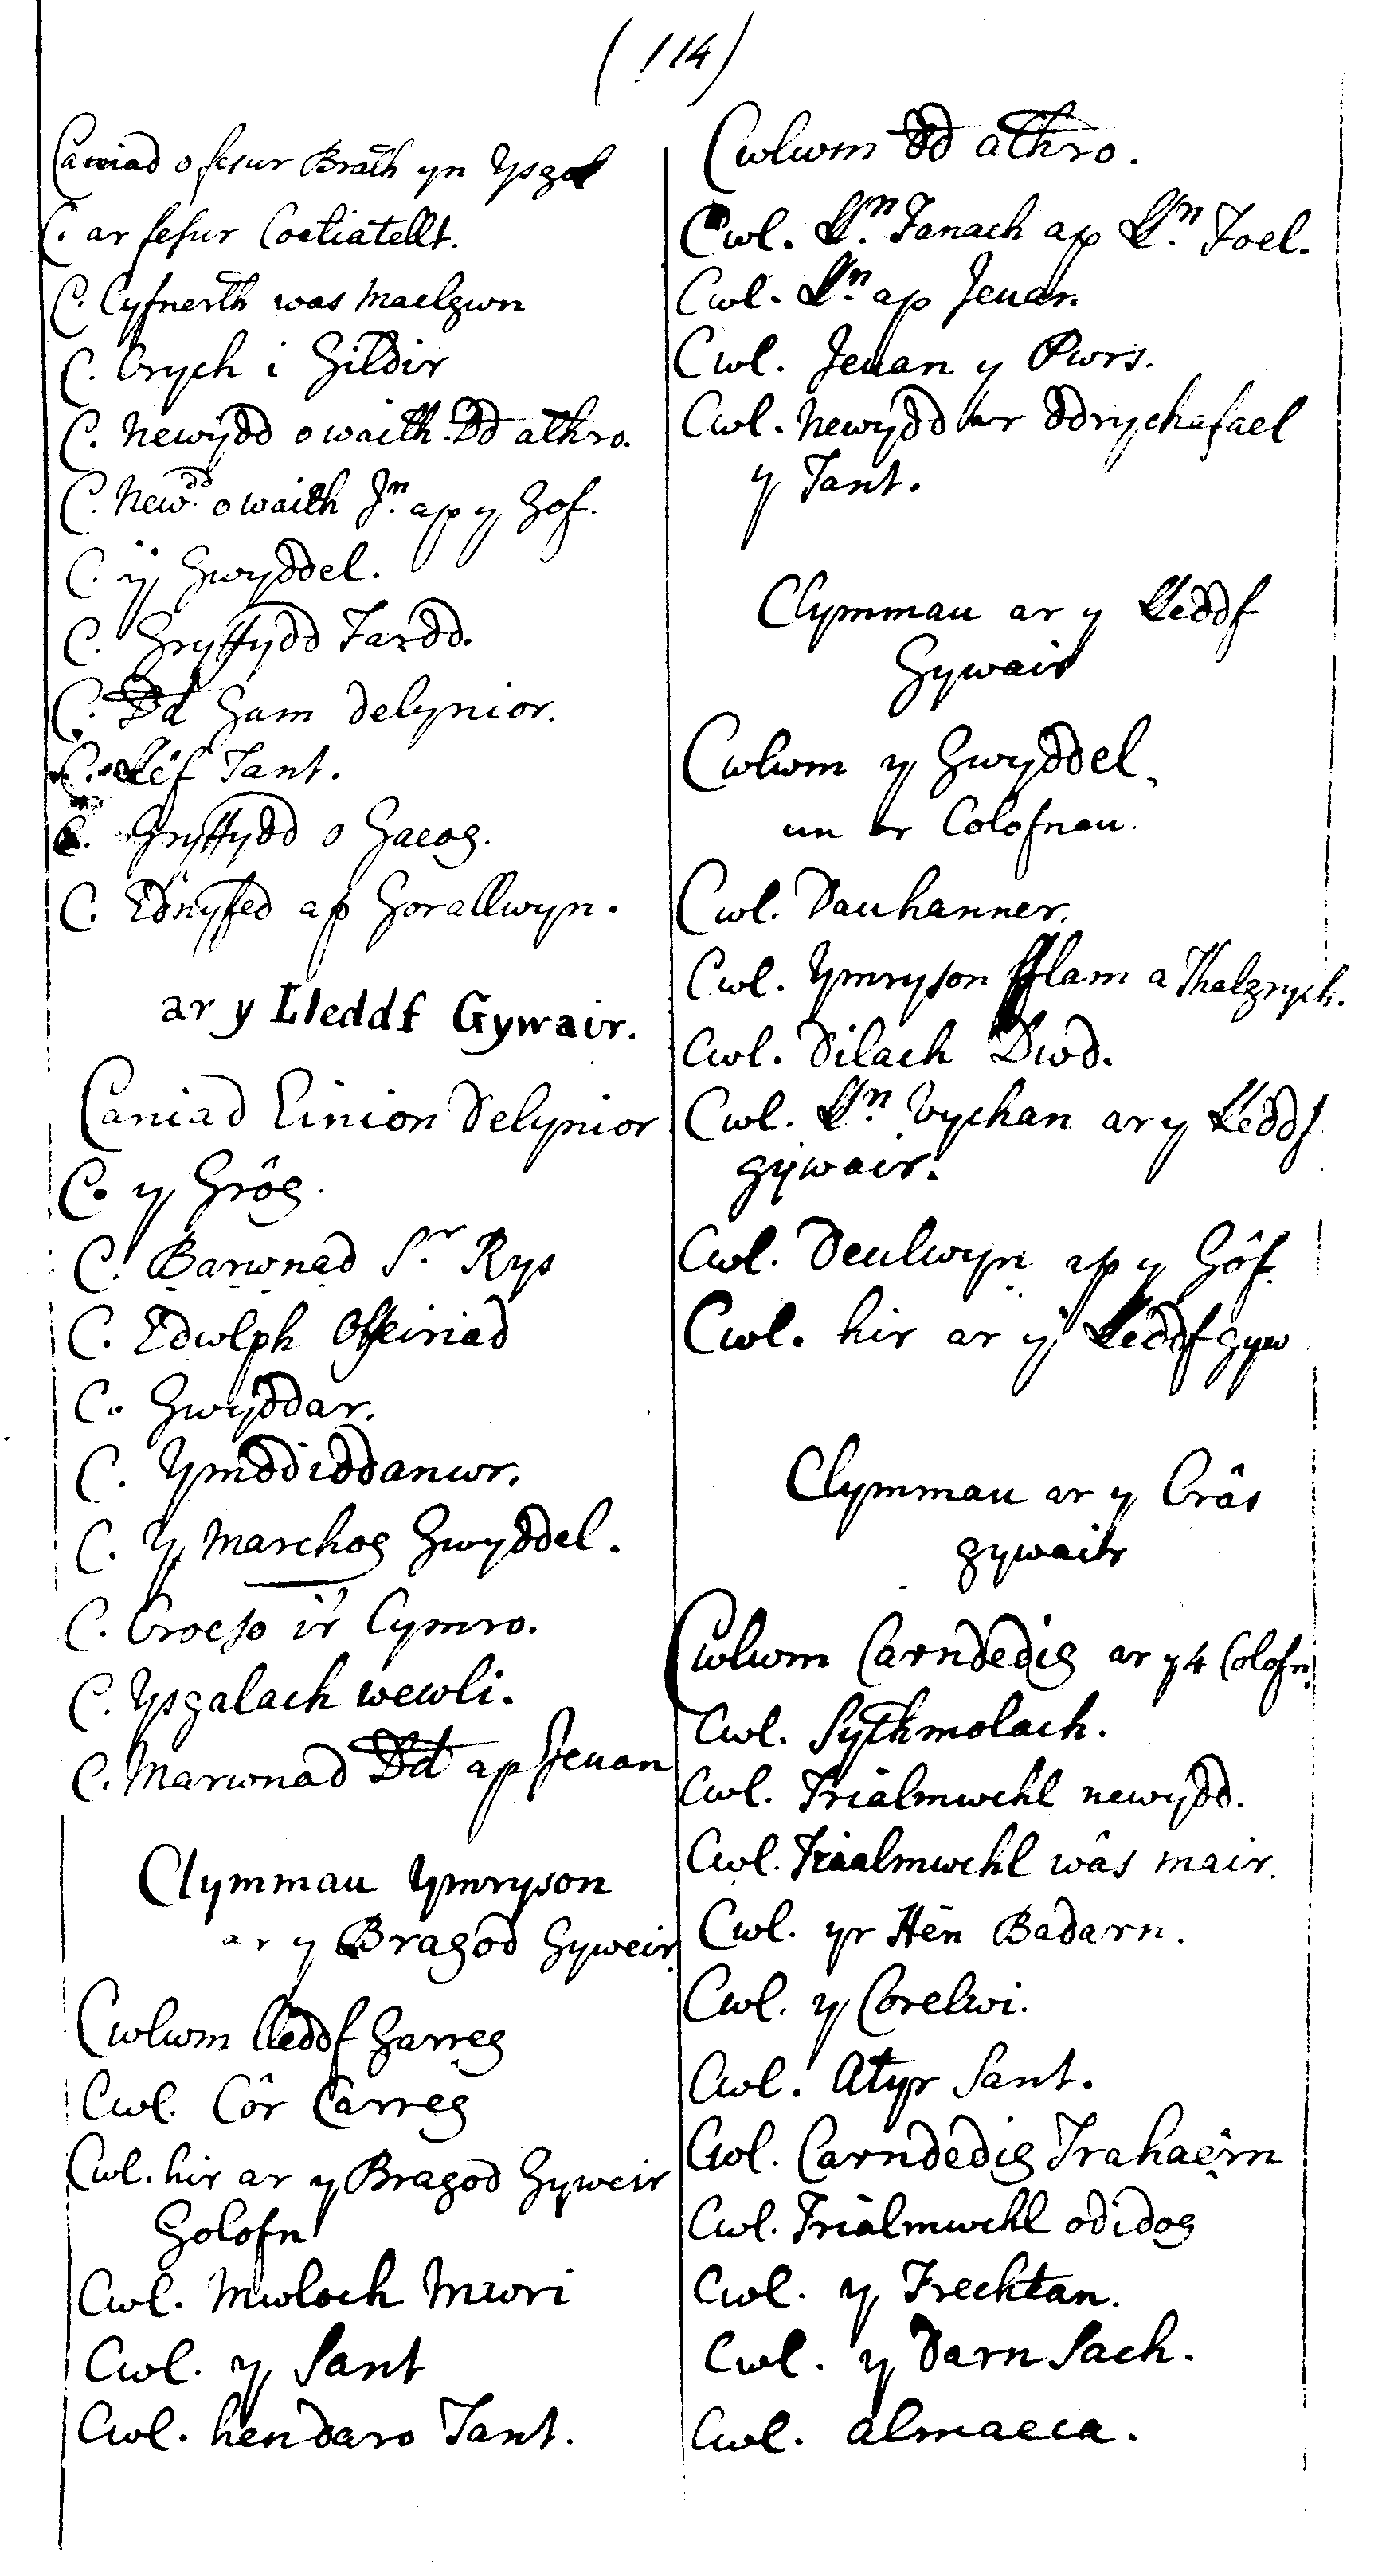 (114)
Caniad o fesur Brath yn Ysgol
C. ar fesur Coctiatellt.
C. Cyfnerth was Maelgwn
C. Crych i Gildir
C. Newydd o waith Dd athro.
C. New.dd o waith Jn. ap y Gof.
C. y Gwyddel.
C. Gryffydd Tardd.
C. Dd Gam delynior.
C. Llef Tant.
C. Gryffydd o Gaeog.
C. Ednyfed ap Gorallwyn.
ar y Lleddf Gywair.
Caniad Einion Delynior
C. y Grôg.
C. Barwnad Sr. Rys
C. Edwlph Offeiriad
C. Gwyddar.
C. Ymddiddanwr.
C. Y Marchog Gwyddel.
C. Croeso i'r Cymro.
C. Ysgalach wewli.
C. Marwnad Dd ap Jeuan
Clymmau Ymryson
ar y Bragod Gyweir.
Cwlwm lleddf Garreg
Cwl. Côr Carreg
Cwl. hir ar y Bragod Gyweir
Golofn
Cwl. Mwloch Mwri
Cwl. y Sant
Cwl. hendaro Tant.
Cwlwm Dd athro.
Cwl. Lln. Fanach ap Lln. Joel.
Cwl. Lln. ap Jeuan.
Cwl. Jeuan y Pwrs.
Cwl. Newydd ar ddrychafael
y Tant.
Clymmau ar y Lleddf
Gywair
Cwlwm y Gwyddel,
un or Colofnau.
Cwl. Dauhanner.
Cwl. Ymryson fflam a Thalgrych.
Cwl. Dilach Dwd.
Cwl. Lln. Vychan ar y Lleddf
gywair.
Cwl. Deulwyn ap y Gôf.
Cwl. hir ar y Lleddf gyw
Clymmau ar y Crâs
gywair
Cwlwm Carndedig ar y 4 Colofn.
Cwl. Sythmolach.
Cwl. Trialmwchl newydd.
Cwl. Trialmwchl wâs mair.
Cwl. yr Hên Badarn.
Cwl. y Corelwi.
Cwl. Atyr Sant.
Cwl. Carndedig Trahaern
Cwl. Trialmwchl odidog
Cwl. y Frechtan.
Cwl. y Darn Sach.
Cwl. almaeca.